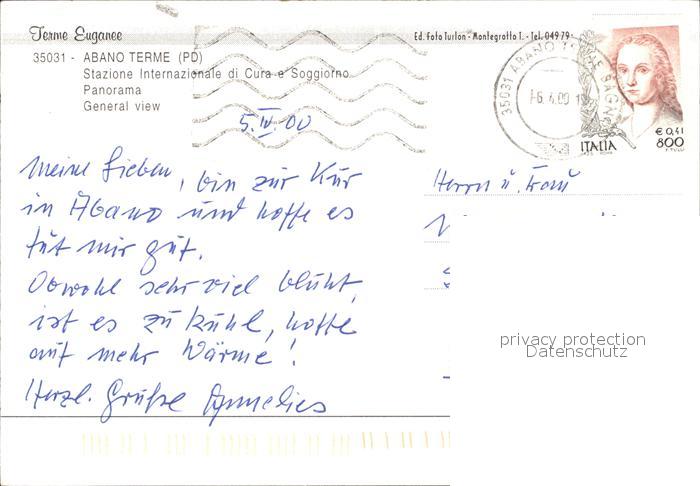 Terme Euganee
Ed. Foto Turlon - Montegrotto T. - Tel. 049 79
35031 - ABANO TERME (PD)
Stazione Internazionale di Cura e Soggiorno
Panorama
General view
35031 ABANO TERME BAGNI
-6.4.00
€ 0,41
800
ITALIA
5.IV.00
Meine Lieben, bin zur Kur
in Abano und hoffe es
tut mir gut.
Obwohl sehr viel blüht,
ist es zu kühl, hoffe
auf mehr Wärme!
Herzl. Grüße Annelies
Herrn u. Frau
privacy protection
Datenschutz